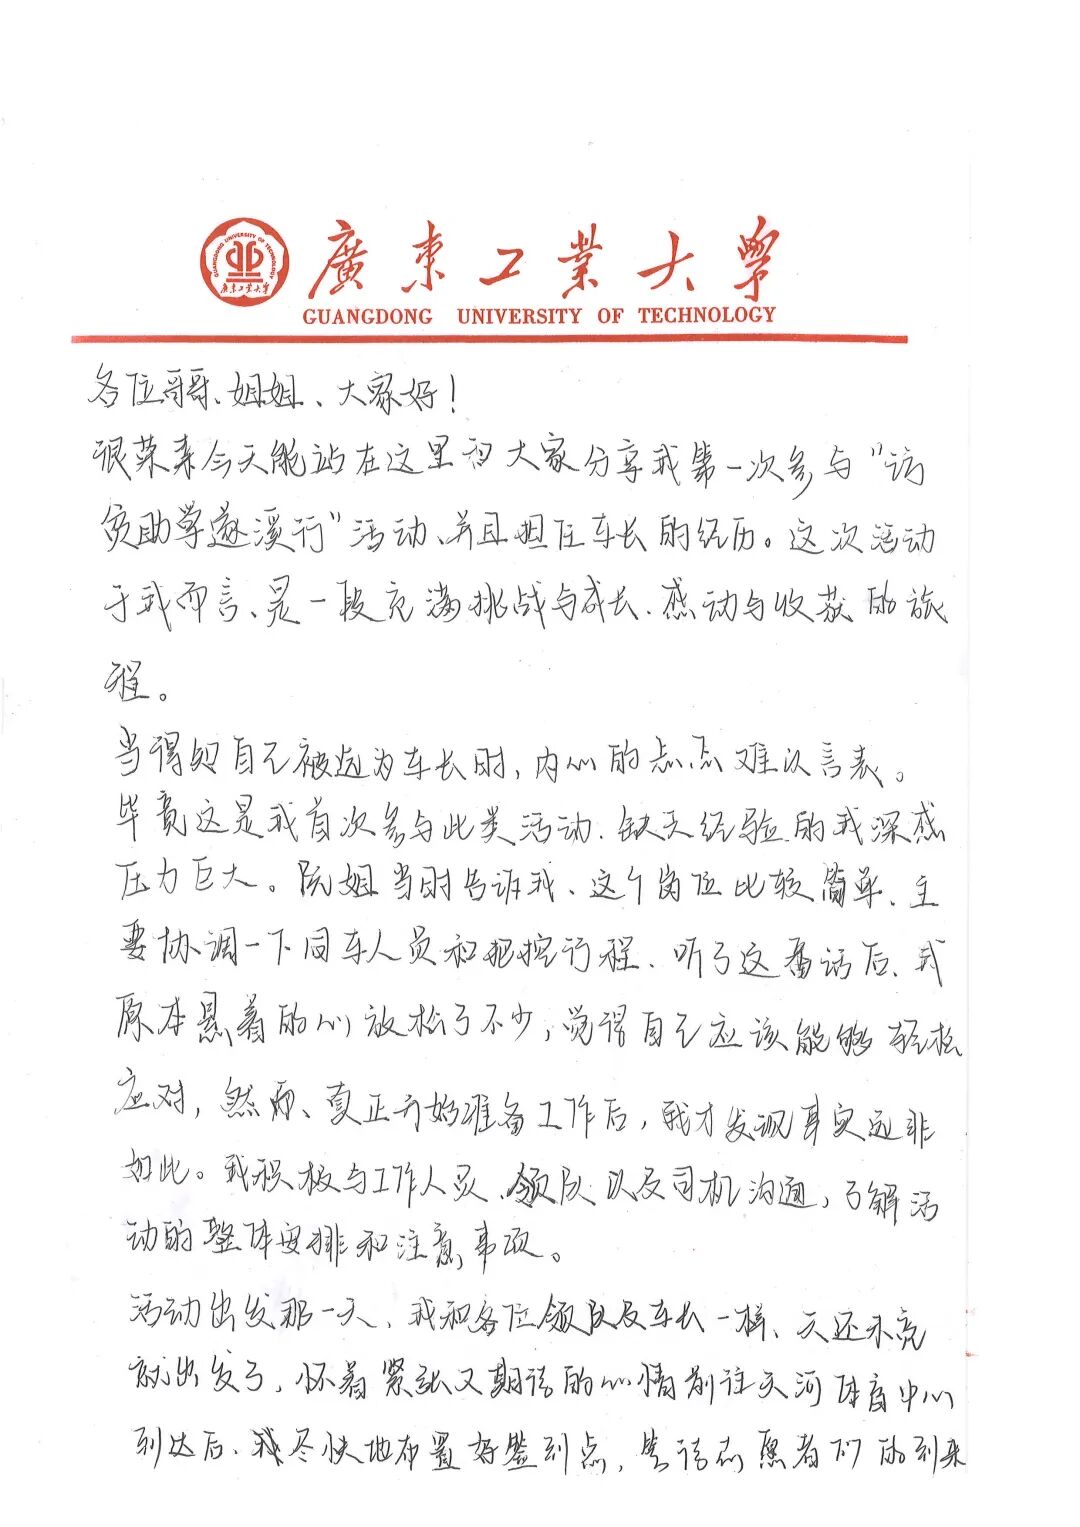 廣東工業大學
GUANGDONG UNIVERSITY OF TECHNOLOGY
各位哥哥、姐姐、大家好！
很荣幸今天能站在这里和大家分享我第一次参与“访
贫助学遂溪行”活动、并且担任车长的经历。这次活动
于我而言、是一段充满挑战与成长、感动与收获的旅
程。
当得知自己被选为车长时，内心的忐忑难以言表。
毕竟这是我首次参与此类活动、缺乏经验的我深感
压力巨大。阮姐当时告诉我、这个岗位比较简单、主
要协调一下同车人员和把控行程、听了这番话后、我
原本悬着的心放松了不少，觉得自己应该能够轻松
应对，然而、真正开始准备工作后，我才发现事实远非
如此。我积极与工作人员、领队以及司机沟通，了解活
动的整体安排和注意事项。
活动出发那一天、我和各位领队及车长一样、天还未亮
就出发了，怀着紧张又期待的心情前往天河体育中心
到达后、我尽快地布置好签到点，等待志愿者们的到来